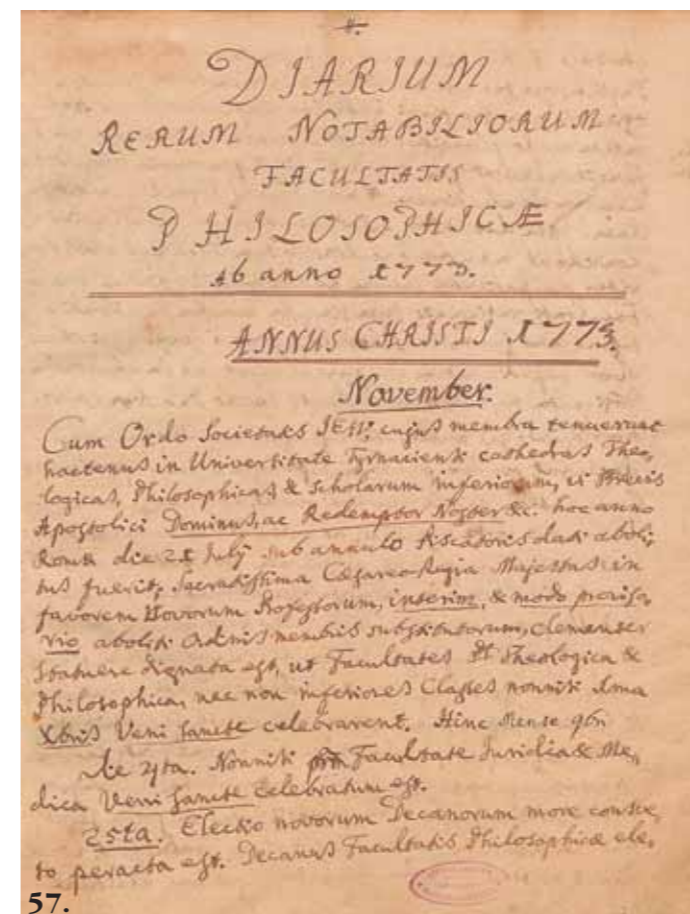 DIARIUM
RERUM NOTABILIORUM
FACULTATIS
PHILOSOPHICÆ
ab anno 1773.
ANNUS CHRISTI 1773.
November.
Cum Ordo Societatis JESU, cujus membra tenuerunt
hactenus in Universitate Tyrnaviensi cathedras Theo,
logicas, Philosophicas & scholarum inferiorum, vi Brevis
Apostolici Dominus, ac Redemptor Noster &c. hoc anno
Romæ die 21 Julij sub annulo Piscatoris dati aboli,
tus fuerit, Sacratissima Cæsareo-Regia Majestas in
favorem Novorum Professorum, interim, & modo proviso,
rio aboliti Ordinis membris substitutorum, clementer
statuere dignata est, ut Facultates Theologica &
Philosophica, nec non inferiores Classes nonnisi 1ma
Xbris Veni Sancte celebrarent. Hinc Mense 9bri
die Nonnisi Facultate Juridica & Me,
dica Veni Sancte celebratum est.
25ta. Electio novorum Decanorum more consve,
to peracta est. Decanus Facultatis Philosophicæ ele,
57.